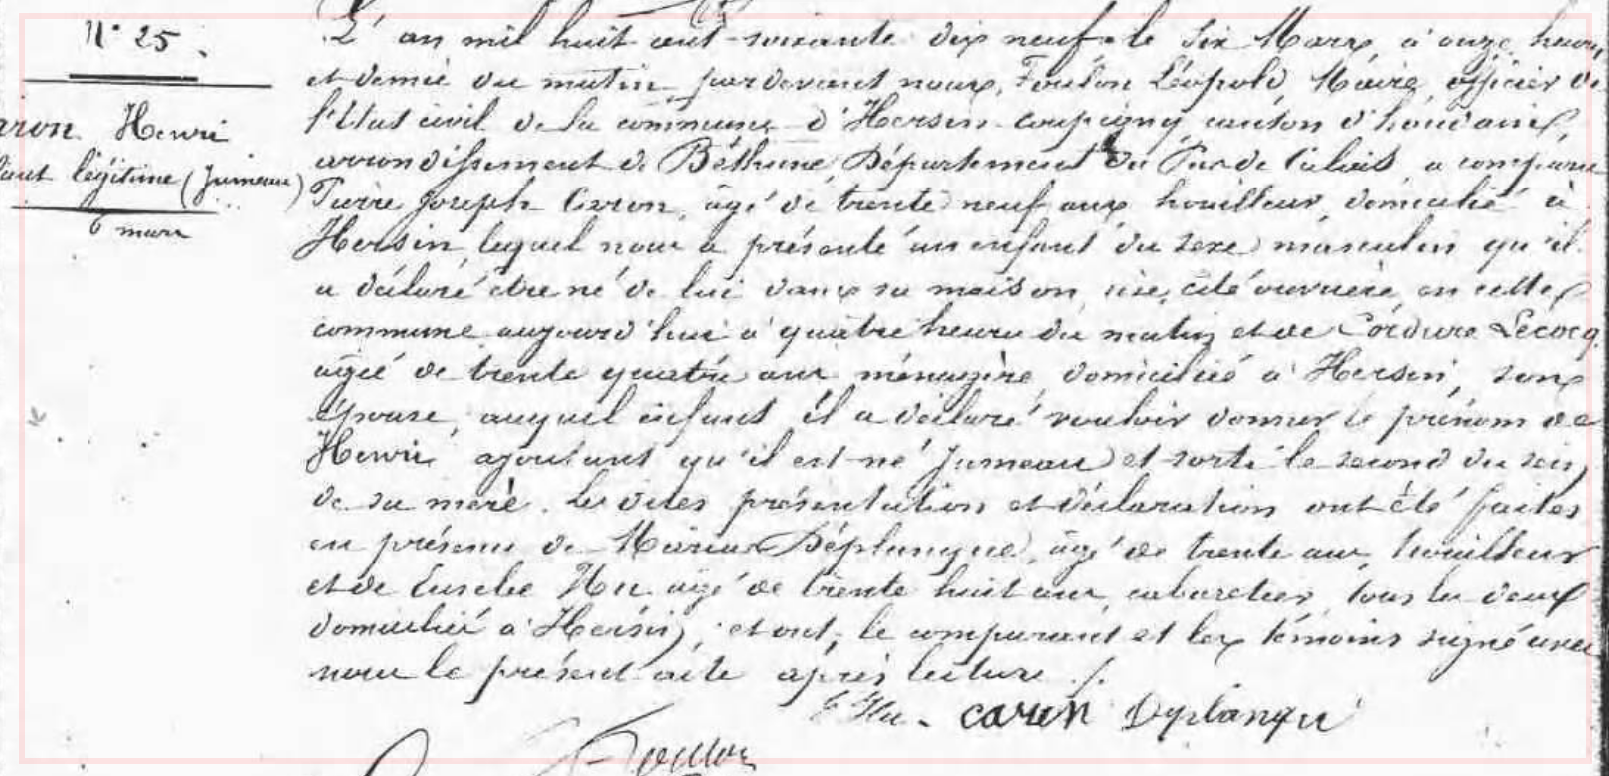 N° 25.
aron Henri
fant légitime (Jumeau)
6 mars
L'an mil huit cent soixante dix neuf le Six Mars, à onze heures
et demie du matin, pardevant nous, Foulon Léopold, Maire, officier de
l'Etat civil de la commune d'Hersin-Coupigny, canton d'houdain,
arrondissement de Béthune, Département du Pas de Calais, a comparu
Pierre Joseph Caron, âgé de trente neuf ans, houilleur, domicilié à
Hersin, lequel nous a présenté un enfant du sexe masculin qu'il
a déclaré être né de lui dans sa maison, sise, cité ouvrière, en cette
commune aujourd'hui à quatre heures du matin et de Cordure Lecocq
âgée de trente quatre ans, ménagère, domiciliée à Hersin, son
épouse, auquel enfant il a déclaré vouloir donner le prénom de
Henri ajoutant qu'il est né Jumeau et sorti le second du sein
de sa mère. Les dites présentation et déclaration ont été faites
en présence de Déplanque, âgé de trente ans, houilleur
et de Eusèbe Hu âgé de trente huit ans, cabaretier, tous les deux
domicilié à Hersin, et ont, le comparant et les témoins signé avec
nous le présent acte après lecture ./.
E Hu. caron Deplanque
Foulon